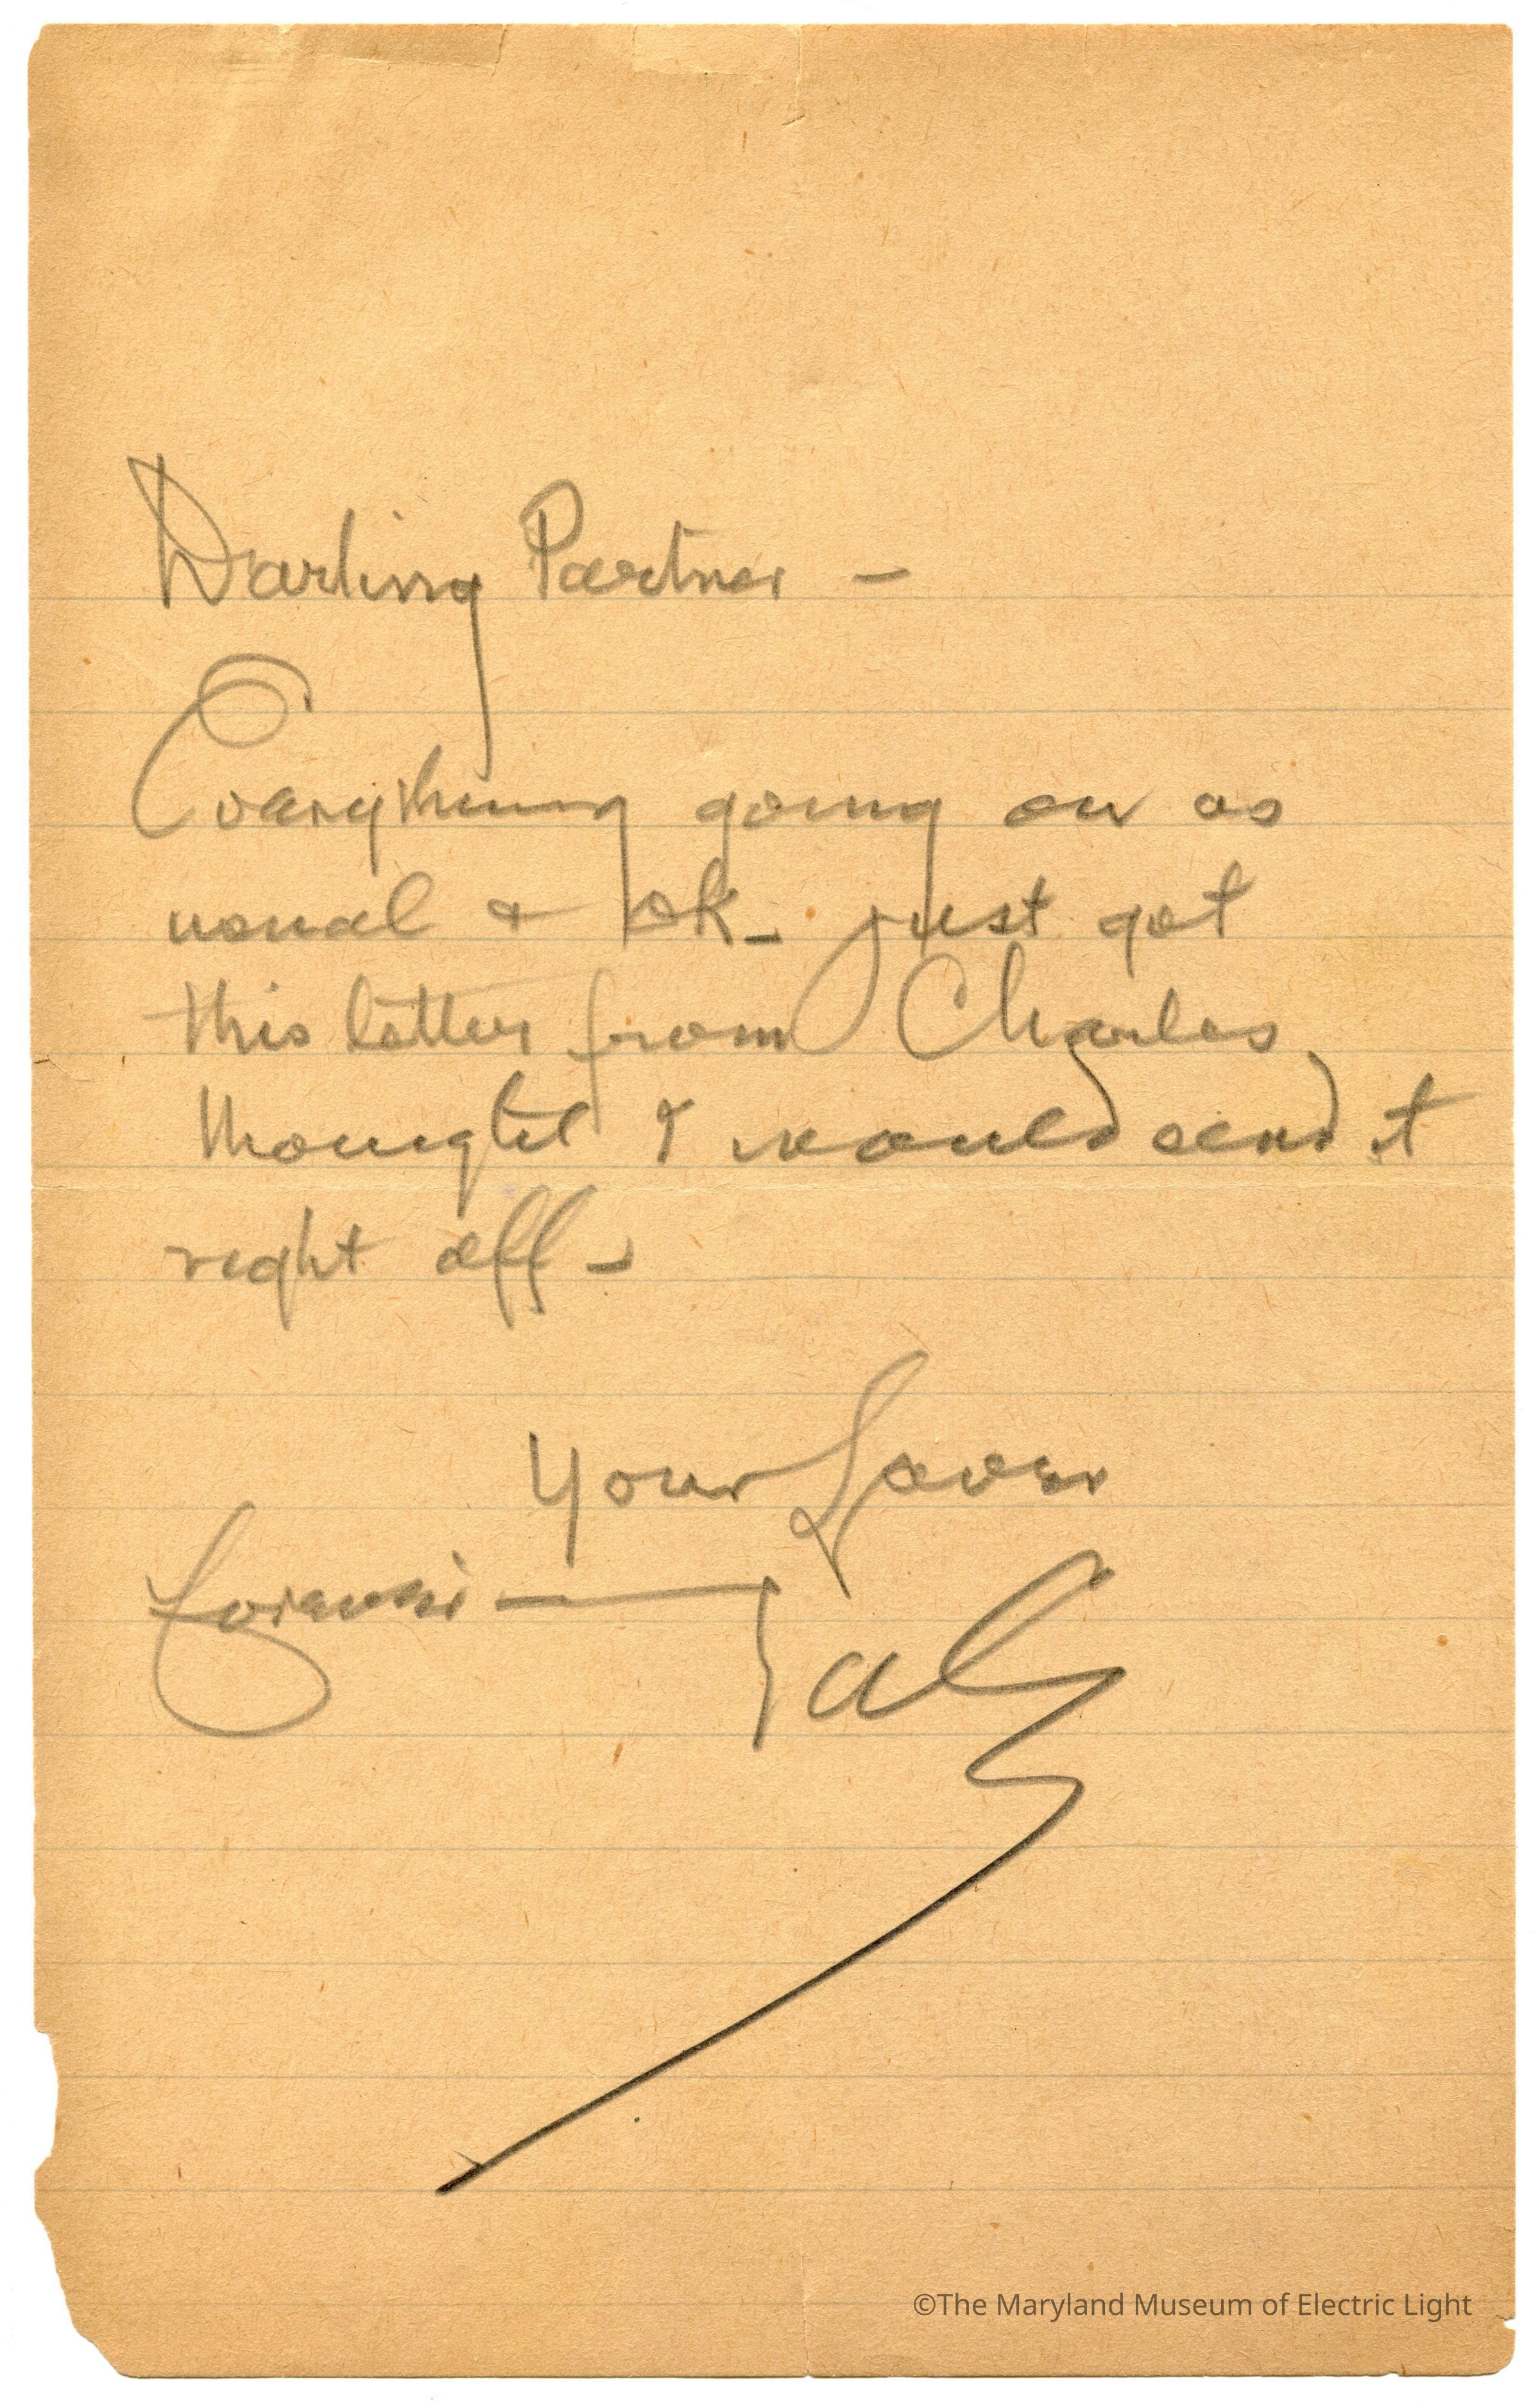 Darling Partner —
Everything going on as
usual & ok – just got
this letter from Charles
thought I would send it
right off –
Your Lover
forever —
©The Maryland Museum of Electric Light